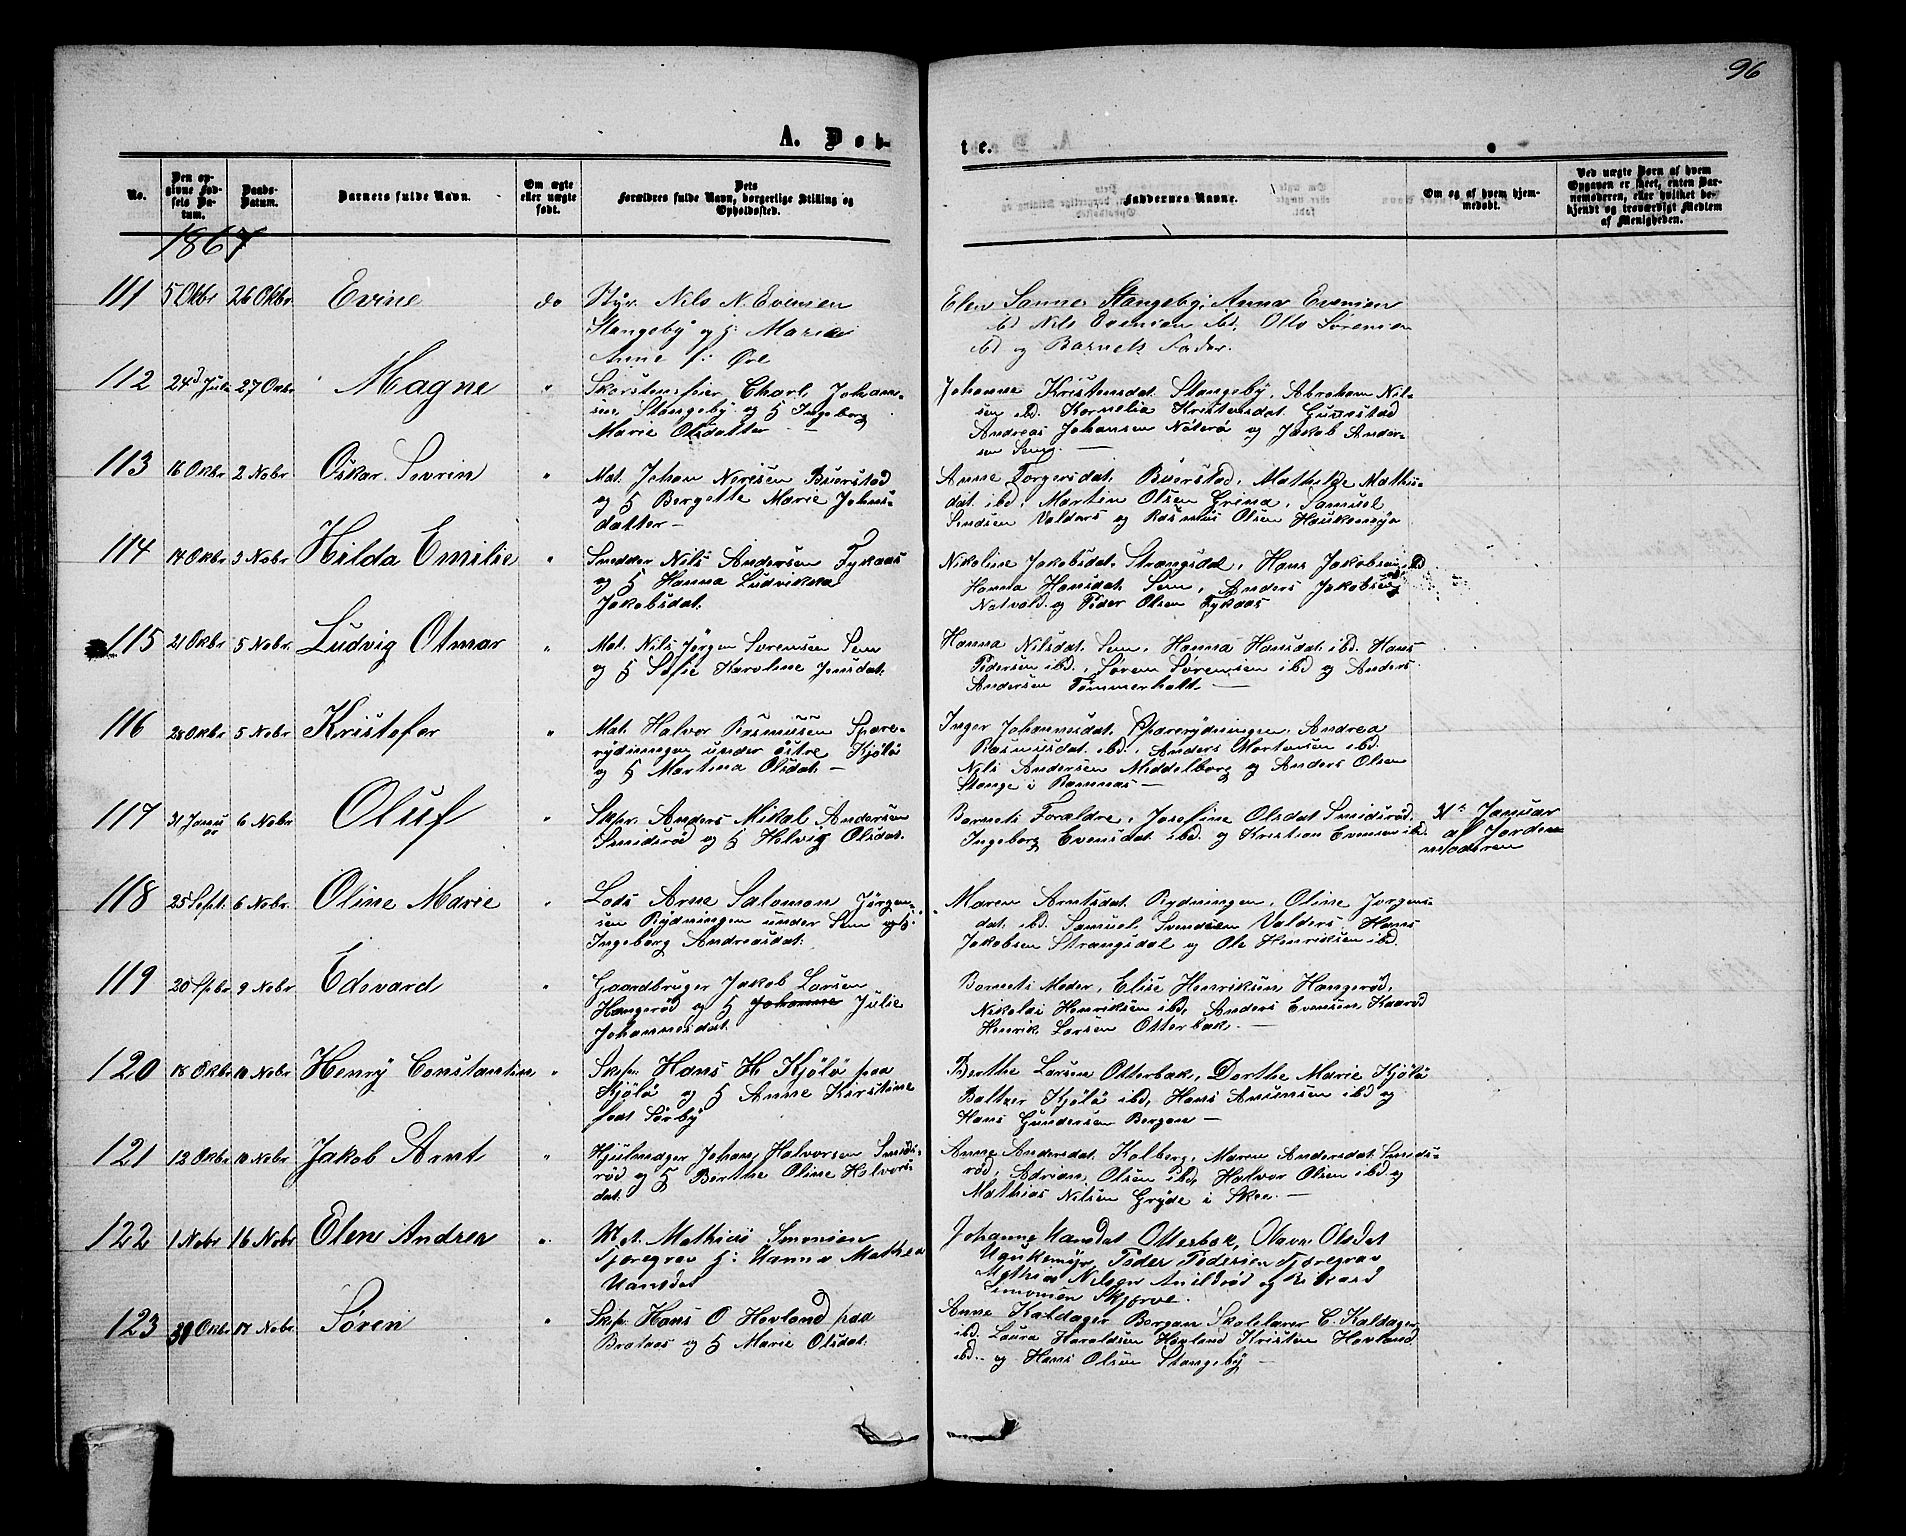 96
A. Døb-
te.
No.
Den opgivne Fødsels Datum.
Daabs-Datum.
Barnets fulde Navn.
Om ægte eller uægte født.
Dets Forældres fulde Navn, borgerlige Stilling og Opholdssted.
Faddernes Navne.
Om og af hvem hjemmedøbt.
Ved uægte Børn af hvem Opgaven er skeet, enten Barnemoderen, eller hvilket bekjendt og troværdigt Medlem af Menigheden.
1867
111 5 Oktbr 26 Oktbr Evine do Styr. Nils N. Evensen
Stangeby og H: Maria
Anne f: Øre
Elen Sanne Stangeby, Anna Evensen
ibd Nils Evensen ibd, Otto Sörensen
ibd og Barnets Fader.
112 24d Juli 27 Oktbr Magne " Skorstensfeier Charl. Johan-
sen Stangeby og H Ingeborg
Marie Olsdatter —
Johanne Kristensdat. Stangeby, Abraham Nil-
sen ibd. Kornelia Kristensdat. Gunnestad
Andreas Johansen Nøterø og Jakob Ander-
sen Sem
113 16 Oktbr 2 Nobr Oskar Sevrin " Mat. Johan Nersen Buerstad
og H Bergette Marie Johns-
datter —
Anne Torgersdat. Buerstad, Mathilde Mathis-
dat ibd, Martin Olsen Grina, Samuel
Sendsen Valders og Rasmus Olsen Haukemyr
114 17 Oktbr 3 Nobr Hilda Emilie " Snedker Nils Andersen Tykaas
og H Hanna Ludvikka
Jakobsdat.
Nikoline Jakobsdat. Strangsdal, Hans Jakobsen ibd
Hanna Hansdat. Sem, Anders Jakobsen
Natvald og Peder Olsen Tykaas
115 21 Oktbr 5 Nobr Ludvig Otmar " Mat. Nils Jörgen Sorensen Sem
og H Sofie Karoline Jensdat.
Hanna Nilsdat. Sem, Hanna Hansdat. ibd. Hans
Pedersen ibd., Sören Sörensen ibd og Anders
Andersen Tömmerholt —
116 28 Oktbr 5 Nobr Kristofer " Mat. Halvor Rasmusen Spare-
rydningen under östre Kjölö
og H Martina Olsdat. —
Inger Johannesdat. Sparerydningen, Andrea
Rasmusdat. ibd., Anders Mortensen ibd.
Nils Andersen Middelborg og Anders Olsen
Stange i Ramnæs —
117 31 Januar 6 Nobr Oluf " Skpr. Anders Mikal Andersen
Smidsröd og H Helvig Olsdat.
Barnets Foraldre, Josefine Olsdat Smidsröd,
Ingeborg Evensdat. ibd. og Kristian Evensen ibd.
31te Januar
af Jorde-
moderen
118 25 Sept. 6 Nobr. Oline Marie " Lods Arne Salomon Jörgen-
sen Rydningen under Sem og H:
Ingeborg Andreasdat.
Maren Arntsdat. Rydningen, Oline Jorgens-
dat. ibd. Samuel Svendsen Valders, Hans
Jakobsen Strangsdal og Ole Henriksen ibd.
119 20 Spbr 9 Nobr Edevard " Gaardbruger Jakob Larsen
Hangeröd og H Johanne Julie
Johannesdat.
Barnets Moder, Elise Henriksen Hangeröd,
Nikolai Henriksen ibd, Anders Evensen Kaaröd
Henrik Larsen Otterbæk. —
120 18 Oktbr 10 Nobr Henry Constantin " Skpr. Hans H. Kjölö paa
Kjölö og H Anne Kirstine
født Sörby
Berthe Larsen Otterbæk, Dorthe Marie Kjölö
Baltzer Kjölö ibd, Hans Amunsen ibd og
Hans Gundersen Bergan —
121 12 Oktbr 10 Nobr Jakob Arnt " Hjulmager Johan Halvorsen Smids-
röd og H Berthe Oline Halvors-
dat.
Anne Andersdat. Kalberg, Maren Andersdat. Smids-
röd, Adrian Olsen ibd, Halvor Olsen ibd og
Mathias Nilsen Gryde i Skee. —
122 1 Nobr 16 Nobr Elen Andrea " Mat. Mathias Simonsen
Tjøregrav H: Hanna Mathea
Hansdat
Johanne Hansdat Otterbæk, Olava Olsdat
Haukemyr, Peder Pedersen Tjøregrav
Mathias Nilsen og Edvard
Simonsen Skjerve.
123 Oktbr 17 Nobr Sören " Skpr. Hans O Hovland paa
Brataas og H Marie Olsdat.
Anne Kaldager Bergan Skolelærer C. Kaldager
ibd. Laura Haraldsen Hovland Kristen Hovland
ibd. og Hans Olsen Stangeby —